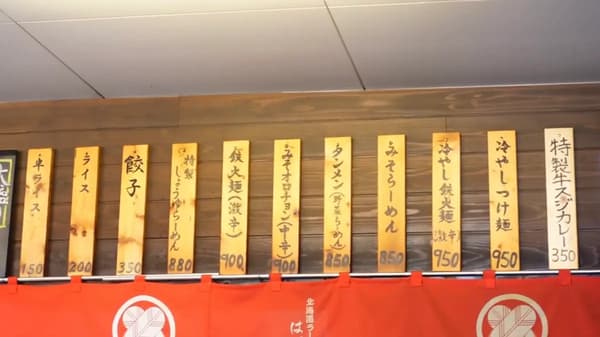 特製牛スジカレー
350
冷やしつけ麺
950
冷やし鉄火麺
(激辛)
950
みそらーめん
850
タンメン(野菜らーめん)
850
みそオロチョン(中辛)
900
鉄火麺(激辛)
900
特製
しょうゆらーめん
880
餃子
350
ライス
200
半ライス
150
北海道ラー
は